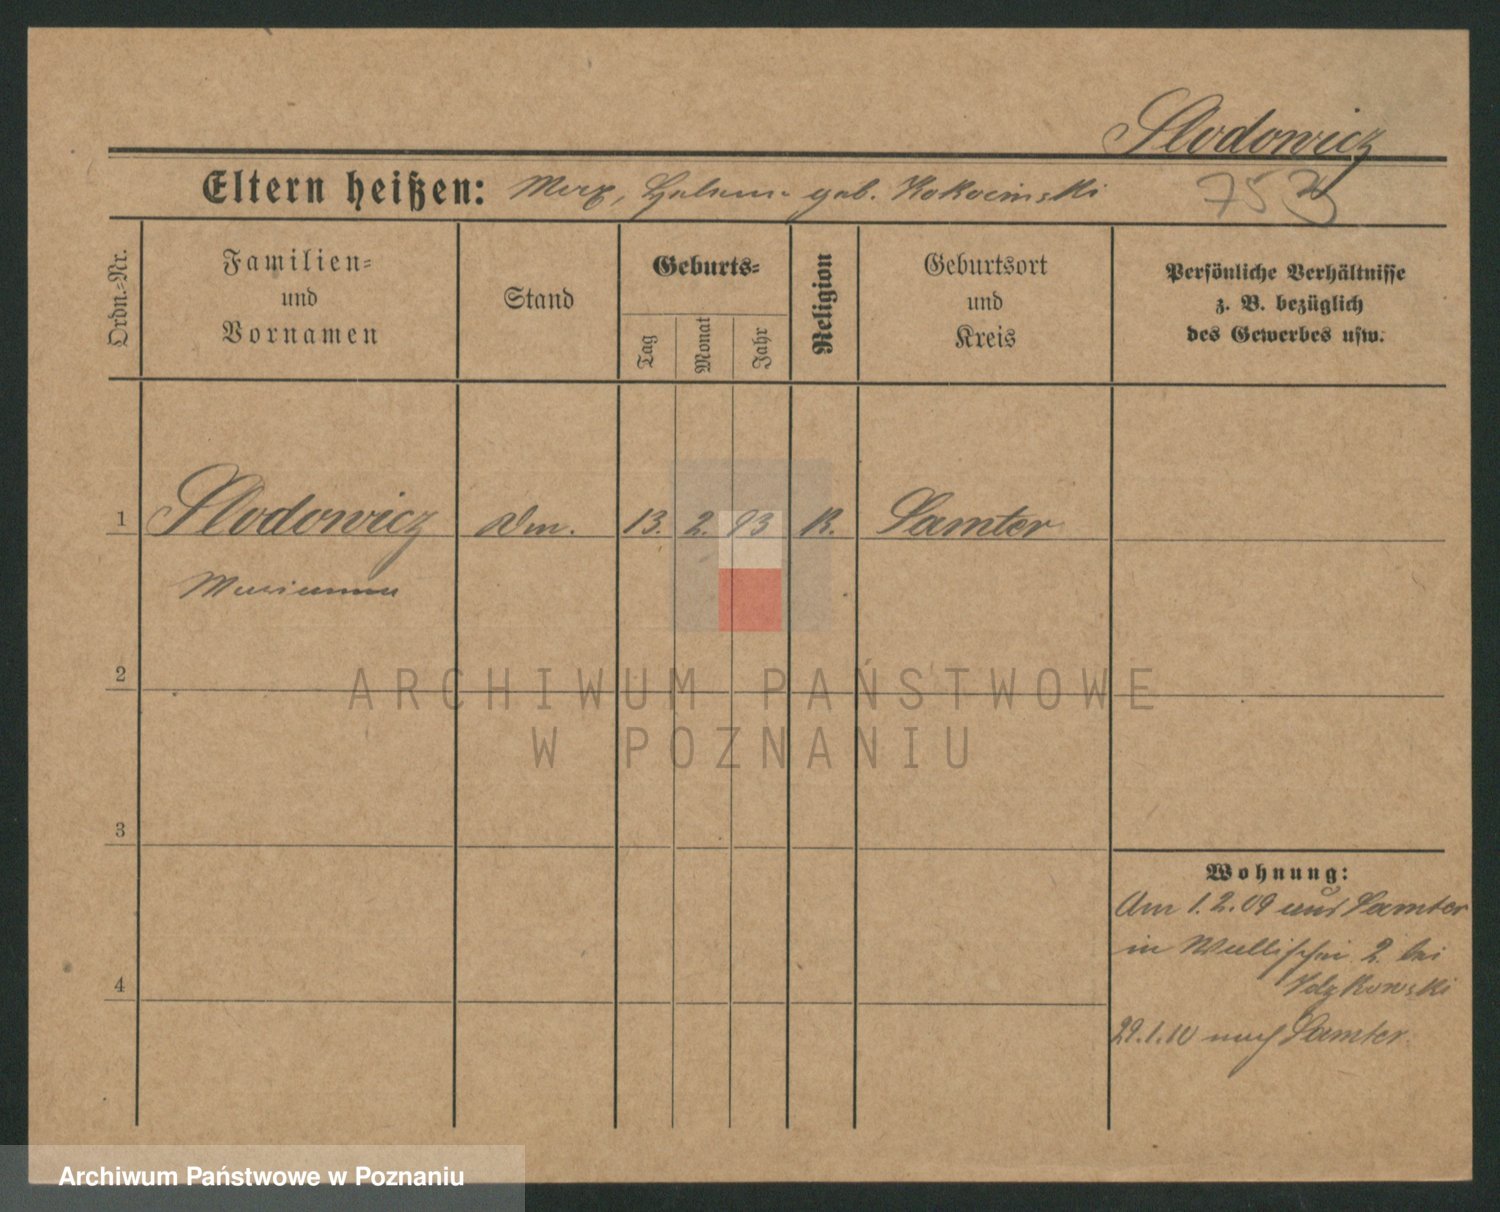 Slodowicz
Eltern heißen: Max, geb. Kokocinski
753
Ordn.-Nr.
Familien-
und
Vornamen
Stand
Geburts-
Tag
Monat
Jahr
Religion
Geburtsort
und
Kreis
Persönliche Verhältnisse
z. B. bezüglich
des Gewerbes usw.
1 Slodowicz 13. 2. 93 K. Samter
Marianna
2
ARCHIWUM PAŃSTWOWE
W POZNANIU
3
Wohnung:
Am 1.2.09 aus Samter
in Wallischei 2 bei
4
29.1.10 nach Samter.
Archiwum Państwowe w Poznaniu